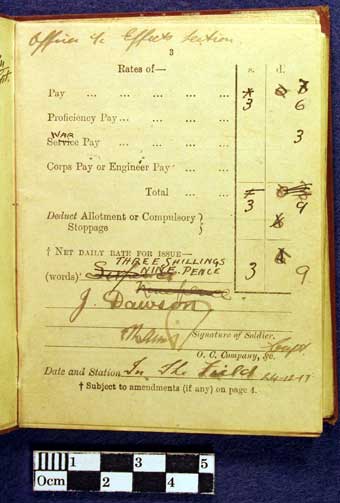 Officer i/c Effects Section.
3
Rates of—
s. d.
Pay ... ... ... ... ... 3 6
Proficiency Pay ... ... ... ...
WAR
Service Pay ... ... ... ... 3
Corps Pay or Engineer Pay ... ...
Total ... ... 3 9
Deduct Allotment or Compulsory }
Stoppage
† NET DAILY RATE FOR ISSUE—
THREE SHILLINGS
(words) NINE PENCE 3 9
J. Dawson
Signature of Soldier.
Capt.
O. C. Company, &c.
Date and Station In The Field 24-12-17
† Subject to amendments (if any) on page 4.
1 3 5
0cm 2 4